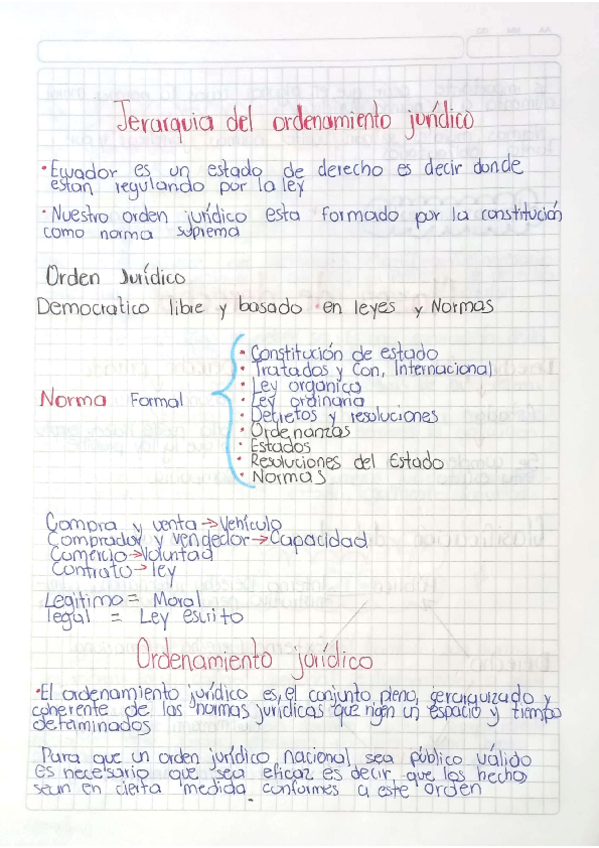 Jerarquia del ordenamiento jurídico
• Ecuador es un estado de derecho es decir donde
estan regulando por la ley
• Nuestro orden jurídico esta formado por la constitución
como norma suprema
Orden Jurídico
Democratico libre y basado en leyes y Normas
Norma Formal
• Constitución de estado
• Tratados y Con, Internacional
• Ley organica
• Ley ordinaria
• Decretos y resoluciones
• Ordenanzas
• Estados
• Resoluciones del Estado
• Normas
Compra y venta → Vehículo
Comprador y vendedor → Capacidad
Comercio → Voluntad
Contrato → ley
Legitimo = Moral
legal = Ley escrito
Ordenamiento jurídico
• El ordenamiento jurídico es, el conjunto pleno, gerarquizado y
coherente de las normas juridicas que rigen un espacio y tiempo
detaminados
Para que un orden jurídico nacional sea público válido
es necesario que sea eficaz es decir, que los hechos
sean en cierta medida conformes a este orden